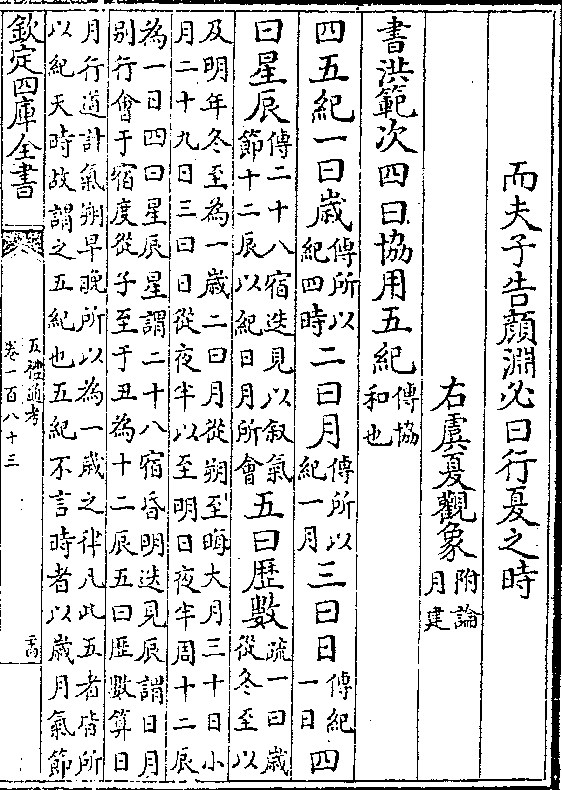 而夫子告顔淵必曰行夏之時
右虞夏觀象附論月建
書洪範次四曰協用五紀傳協和也
四五紀一曰歲傳所以紀四時二曰月傳所以紀一月三曰日傳紀一日四
曰星辰傳二十八宿迭見以叙氣節十二辰以紀日月所會五曰歷數疏一曰歲從冬至以
及明年冬至為一歲二曰月從朔至晦大月三十日小
月二十九日三曰日從夜半以至明日夜半周十二辰
為一日四曰星辰星謂二十八宿昏明迭見辰謂日月
别行會于宿度從子至于丑為十二辰五曰歷數算日
月行道計氣朔早晚所以為一歲之律凡此五者皆所
以紀天時故謂之五紀也五紀不言時者以歲月氣節
欽定四庫全書
五禮通考
卷一百八十三